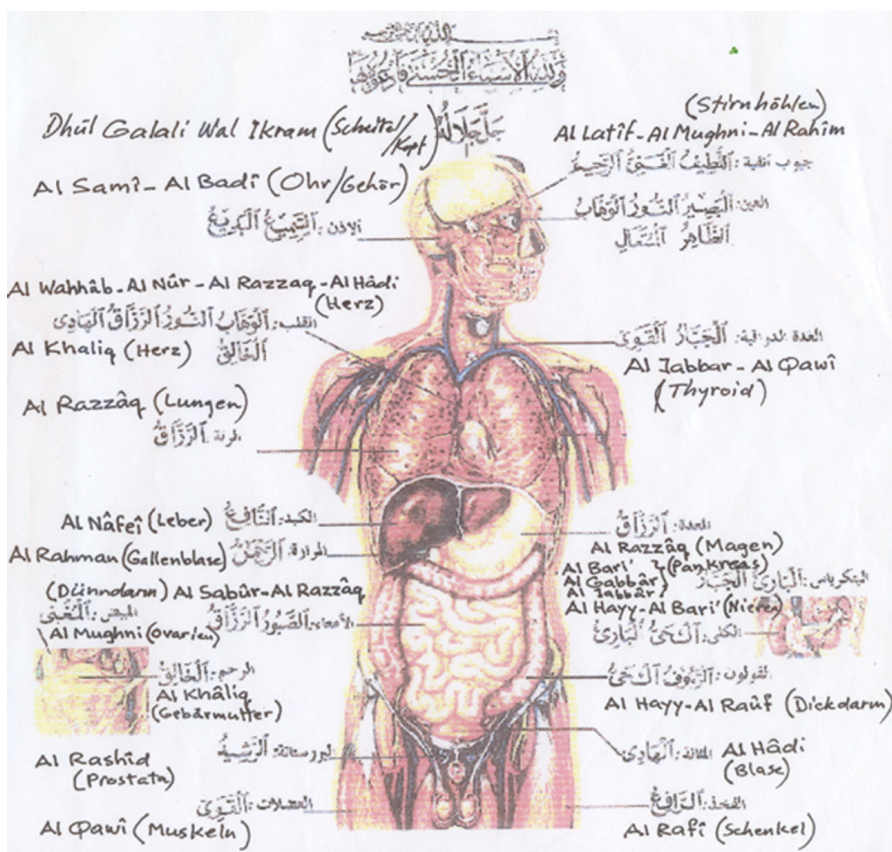 ولله الأسماء الحسنى فادعوه بها
جل جلاله
Dhûl Galali Wal Ikram (Scheitel/Kopf)
(Stirnhöhlen)
Al Latîf - Al Mughni - Al Rahîm
جيوب أنفية: اللطيف الغني الرحيم
Al Samî - Al Badî (Ohr/Gehör)
الاذن: السميع البديع
العين: البصير النور الوهاب
الظاهر المتعال
Al Wahhâb - Al Nûr - Al Razzaq - Al Hâdi
(Herz)
القلب: الوهاب النور الرزاق الهادي
الخالق
Al Khaliq (Herz)
الغدة الدرقية: الجبار القوي
Al Jabbar - Al Qawî
(Thyroid)
Al Razzâq (Lungen)
الرئة: الرزاق
Al Nâfeî (Leber)
الكبد: النافع
المعدة: الرزاق
Al Razzâq (Magen)
Al Rahman (Gallenblase)
المرارة: الرحمن
Al Bari'
Al Gabbâr
Al Jabbâr
(Pankreas)
البنكرياس: البارئ الجبار
(Dünndarm) Al Sabûr - Al Razzâq
الأمعاء: الصبور الرزاق
Al Hayy - Al Bari' (Nieren)
الكلى: الحي البارئ
المبيض: المغني
Al Mughni (Ovarien)
الرحم: الخالق
Al Khâliq
(Gebärmutter)
القولون: الرؤوف الحي
Al Hayy - Al Raûf (Dickdarm)
Al Rashîd
(Prostata)
البروستاتة: الرشيد
المثانة: الهادي
Al Hâdi
(Blase)
العضلات: القوي
Al Qawî (Muskeln)
الفخذ: الرافع
Al Rafî (Schenkel)